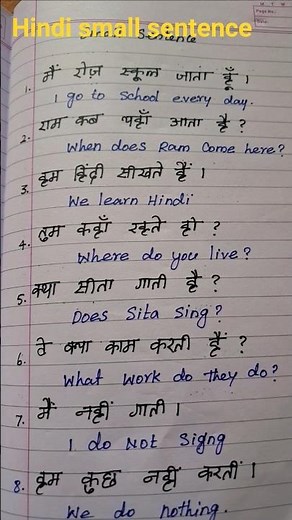 Hindi small sentence
Sentence
1. मैं रोज़ स्कूल जाता हूँ ।
I go to School every day.
2. राम कब यहाँ आता है ?
When does Ram Come here?
3. हम हिंदी सीखते हैं ।
We learn Hindi
4. तुम कहाँ रहते हो ?
Where do you live?
5. क्या सीता गाती है ?
Does Sita Sing?
6. वे क्या काम करती हैं ?
What work do they do?
7. मैं नहीं गाती ।
I do Not Signg
8. हम कुछ नहीं करतीं ।
We do nothing.